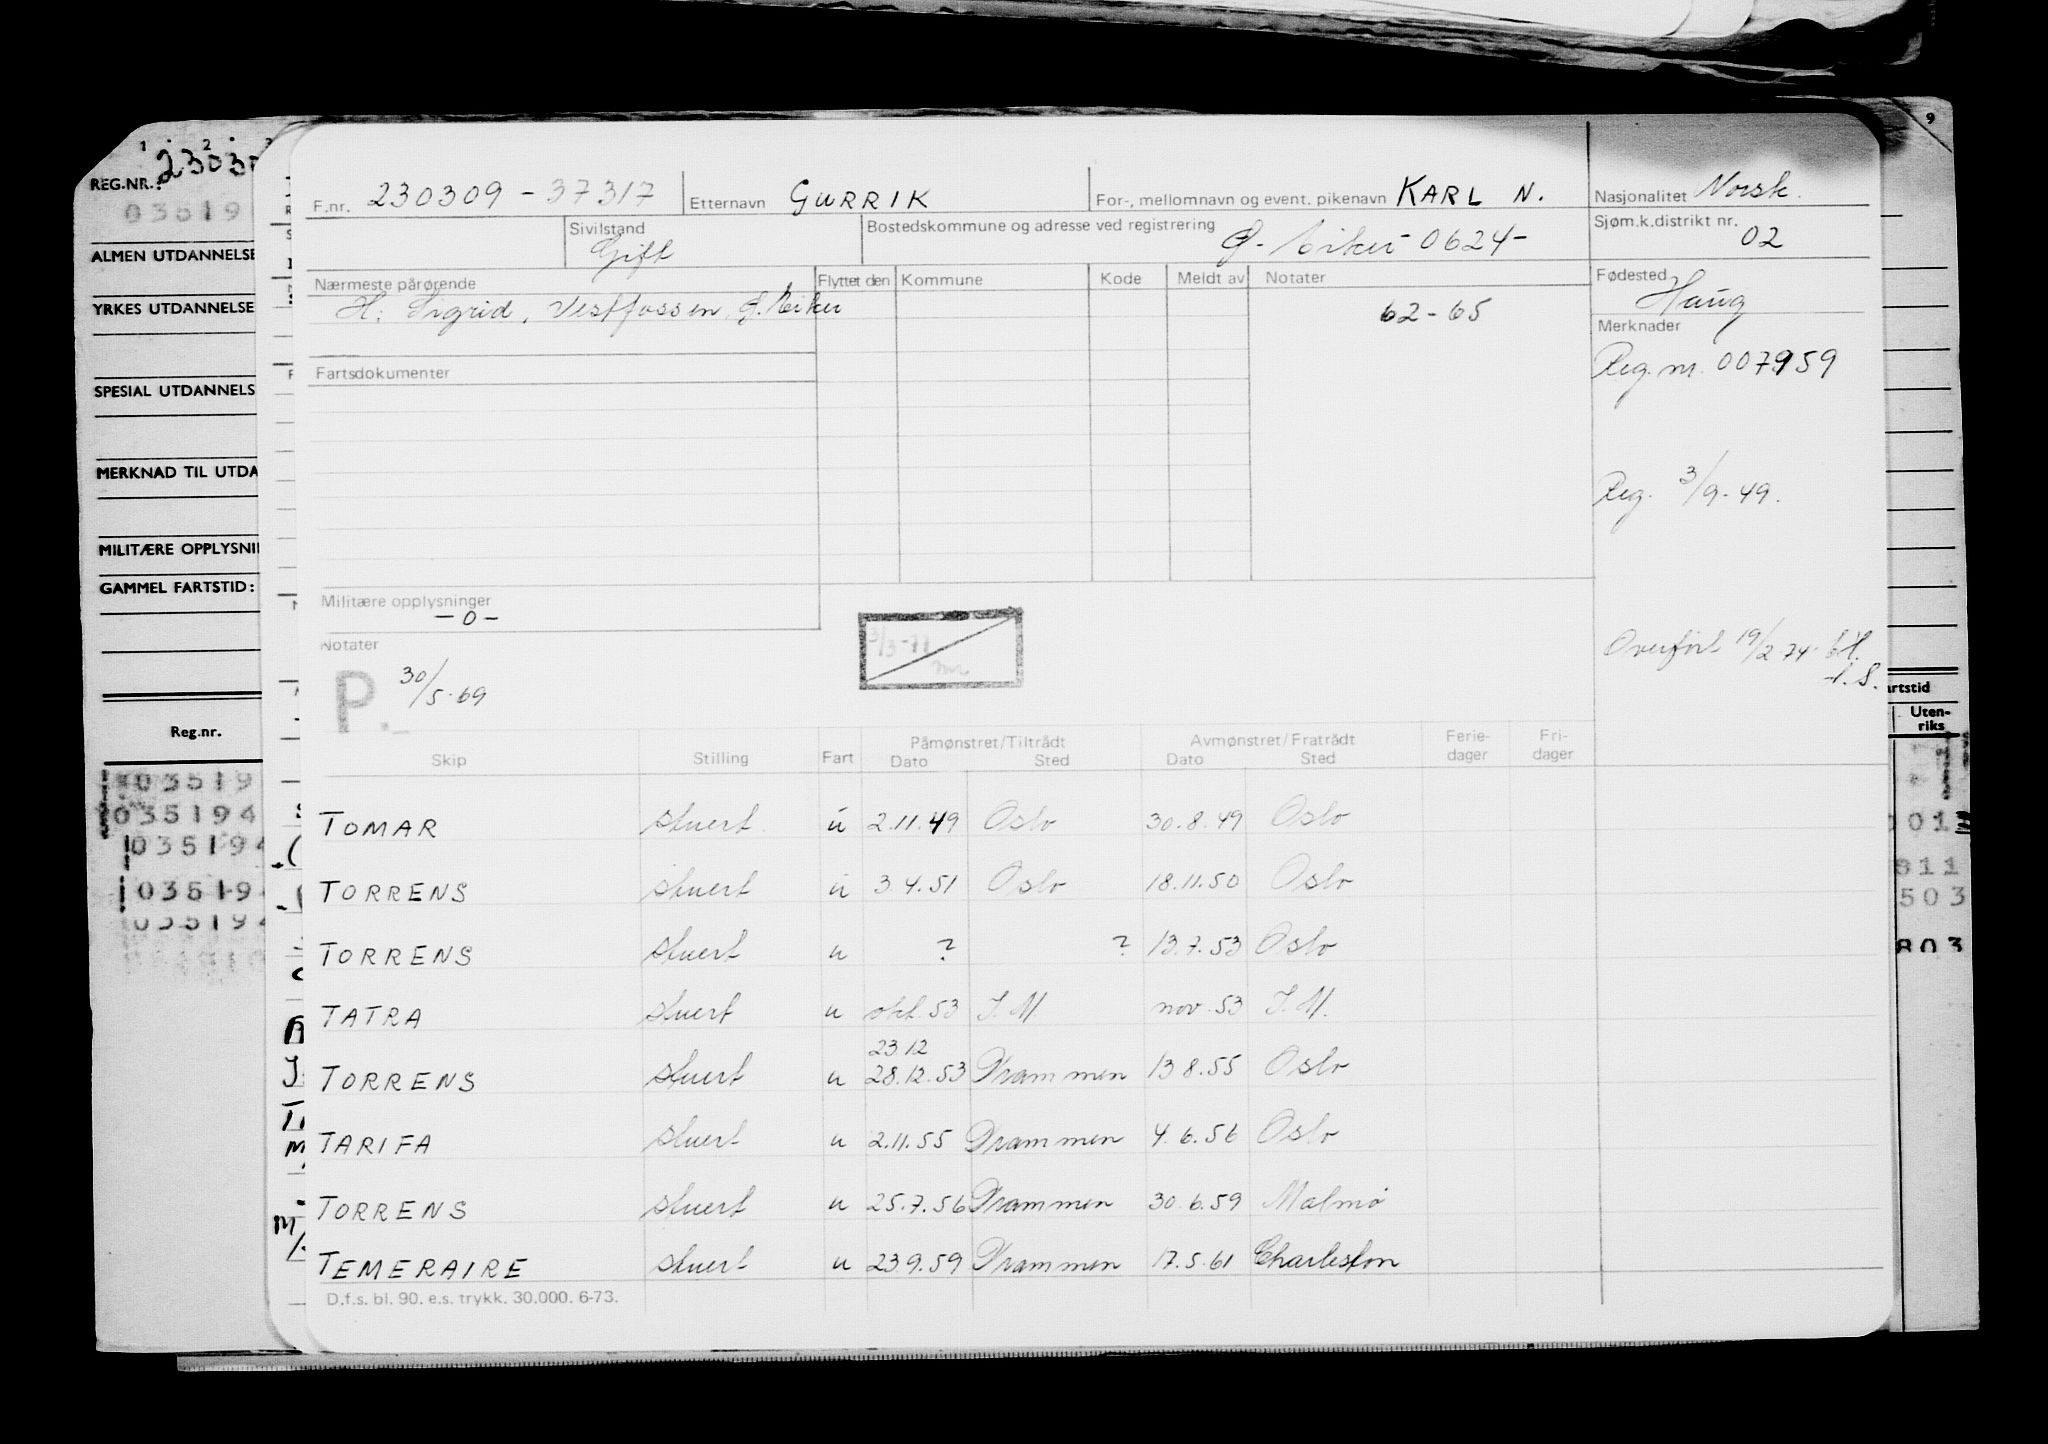 1 2 3
9
REG.NR.: 23030
035191
ALMEN UTDANNELSE
YRKES UTDANNELSE
SPESIAL UTDANNELS
MERKNAD TIL UTDA
MILITÆRE OPPLYSNI
GAMMEL FARTSTID:
Reg.nr.
035191
035194
035194
035194
035194
F.nr. 230309 - 37317 Etternavn GURRIK For-, mellomnavn og event. pikenavn KARL N. Nasjonalitet Norsk.
Sivilstand Gift Bostedskommune og adresse ved registrering Ø. Eiker 0624- Sjøm.k.distrikt nr. 02
Nærmeste pårørende Flyttet den Kommune Kode Meldt av Notater Fødested Haug
H: Sigrid, Vestfossen, Ø. Eiker 62-65
Merknader
Reg. nr. 007959
Fartsdokumenter
Reg. 3/9-49.
Militære opplysninger
-0-
3/3-71
Notater
P. 30/5-69
Overført 19/2-74
Skip Stilling Fart Påmønstret/Tiltrådt Dato Sted Avmønstret/Fratrådt Dato Sted Ferie-dager Fri-dager
TOMAR stuert u 2.11.49 Oslo 30.8.49 Oslo
TORRENS stuert u 3.4.51 Oslo 18.11.50 Oslo
TORRENS stuert u ? ? 13.7.53 Oslo
TATRA stuert u okt.53 I.M nov.53 I.M.
23.12
TORRENS stuert u 28.12.53 Drammen 13.8.55 Oslo
TARIFA stuert u 2.11.55 Drammen 4.6.56 Oslo
TORRENS stuert u 25.7.56 Drammen 30.6.59 Malmö
TEMERAIRE stuert u 23.9.59 Drammen 17.5.61 Charleston
D.f.s. bl. 90. e.s. trykk. 30.000. 6-73.
artstid
Uten-
riks
001
811
503
803